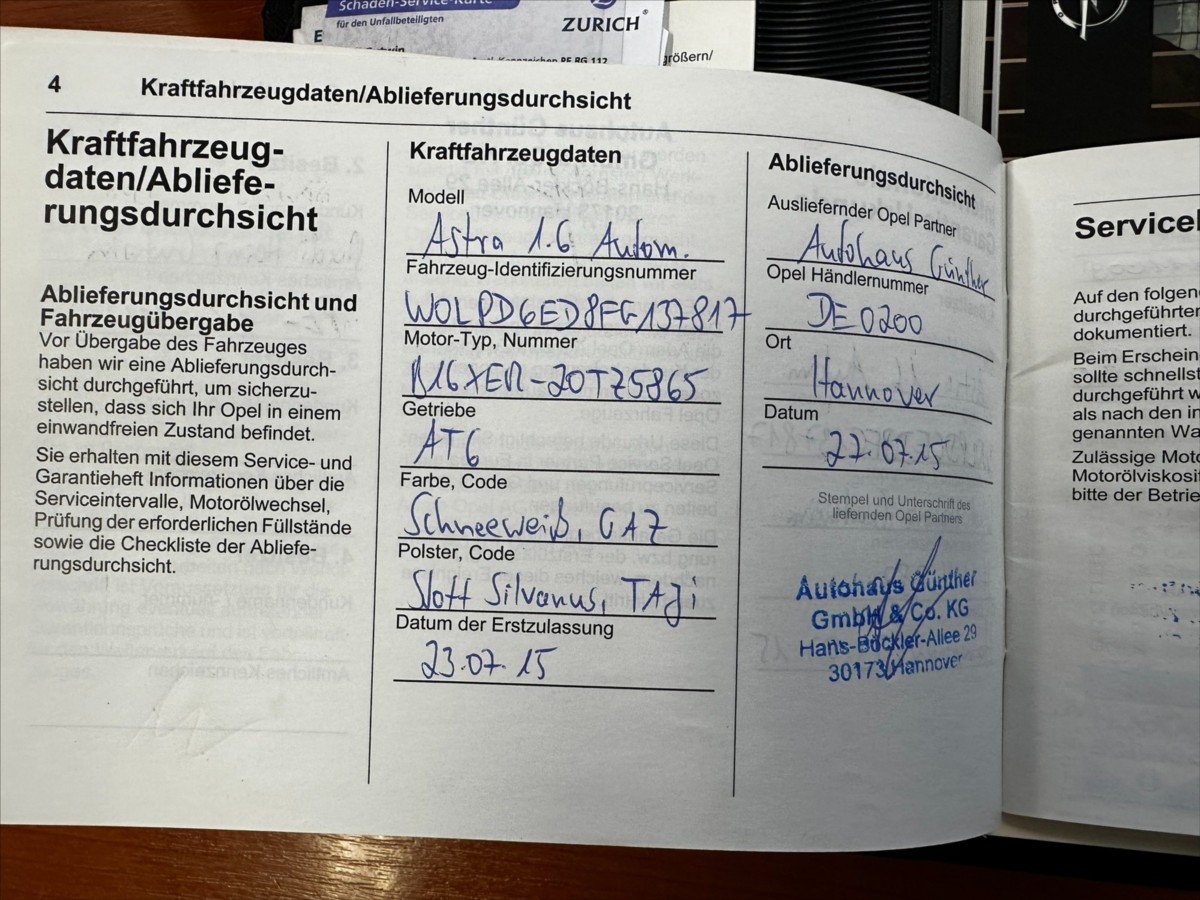 Schaden-Service-Karte
für den Unfallbeteiligten
ZURICH
größern/
4
Kraftfahrzeugdaten/Ablieferungsdurchsicht
Kraftfahrzeug-
daten/Abliefe-
rungsdurchsicht
Ablieferungsdurchsicht und
Fahrzeugübergabe
Vor Übergabe des Fahrzeuges
haben wir eine Ablieferungsdurch-
sicht durchgeführt, um sicherzu-
stellen, dass sich Ihr Opel in einem
einwandfreien Zustand befindet.
Sie erhalten mit diesem Service- und
Garantieheft Informationen über die
Serviceintervalle, Motorölwechsel,
Prüfung der erforderlichen Füllstände
sowie die Checkliste der Abliefe-
rungsdurchsicht.
Kraftfahrzeugdaten
Modell
Astra 1.6 Autom.
Fahrzeug-Identifizierungsnummer
W0LPD6ED8FG137817
Motor-Typ, Nummer
B16XER-20TZ5865
Getriebe
AT6
Farbe, Code
Schneeweiß, GAZ
Polster, Code
Stoff Silvanus, TAJi
Datum der Erstzulassung
23.07.15
Ablieferungsdurchsicht
Ausliefernder Opel Partner
Autohaus Günther
Opel Händlernummer
DE0200
Ort
Hannover
Datum
22.07.15
Stempel und Unterschrift des
liefernden Opel Partners
Autohaus Günther
GmbH & Co. KG
Hans-Böckler-Allee 29
30173 Hannover
Auf den folgen
durchgeführter
dokumentiert.
Beim Erschein
sollte schnellst
durchgeführt w
als nach den in
genannten Wa
Zulässige Moto
Motorölviskosit
bitte der Betrie